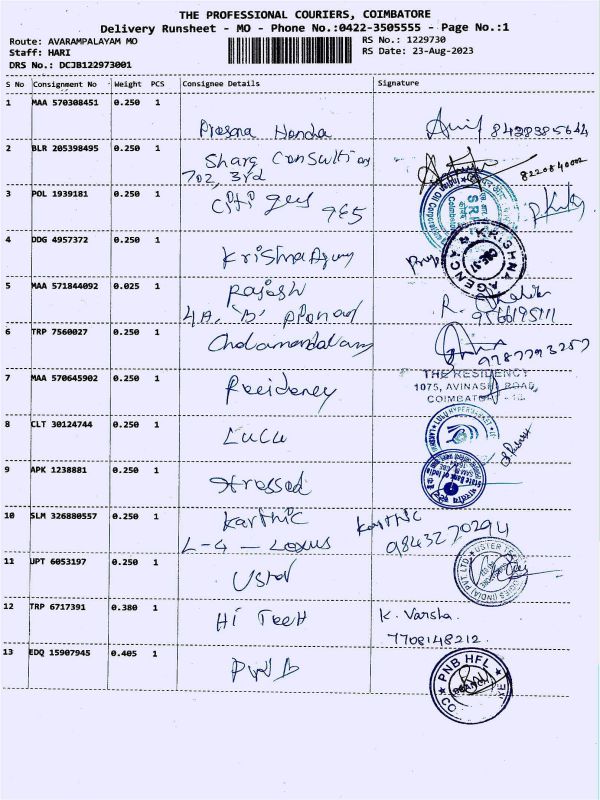 THE PROFESSIONAL COURIERS, COIMBATORE
Delivery Runsheet - MO - Phone No.:0422-3505555 - Page No.:1
Route: AVARAMPALAYAM MO
RS No.: 1229730
Staff: HARI
RS Date: 23-Aug-2023
DRS No.: DCJB122973001
S No Consignment No Weight PCS Consignee Details Signature
1 MAA 570308451 0.250 1
Prasana Honda 8428385644
2 BLR 205398495 0.250 1
702, 3rd 8220840002
3 POL 1939181 0.250 1
965
Indian Oil Corporation
4 DDG 4957372 0.250 1
Krishna Agency
KRISHNA AGENCY
5 MAA 571844092 0.025 1
Rajesh
4A, 'B'
9566195111
6 TRP 7560027 0.250 1
Cholamandalam
9787793257
7 MAA 570645902 0.250 1
Residency
THE RESIDENCY
1075, AVINASHI ROAD,
COIMBATORE - 18.
8 CLT 30124744 0.250 1
LuLu
LULU HYPERMARKET
9 APK 1238881 0.250 1
Stressed
State Bank of India
10 SLM 326880557 0.250 1
Karthic Karthic
L-4 - Lexus 9843270294
11 UPT 6053197 0.250 1
Uster
12 TRP 6717391 0.380 1
Hi Tech K. Varsha.
7708148212.
13 EDQ 15907945 0.405 1
PNB
PNB HFL